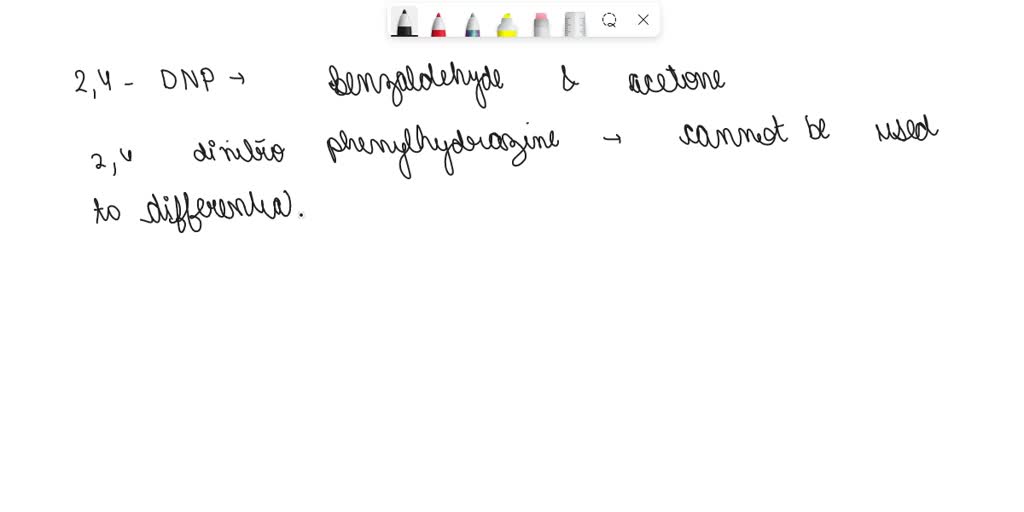 2,4 - DNP → Benzaldehyde & acetone
2,4 dinitro phenylhydrazine → cannot be used
to differentia.